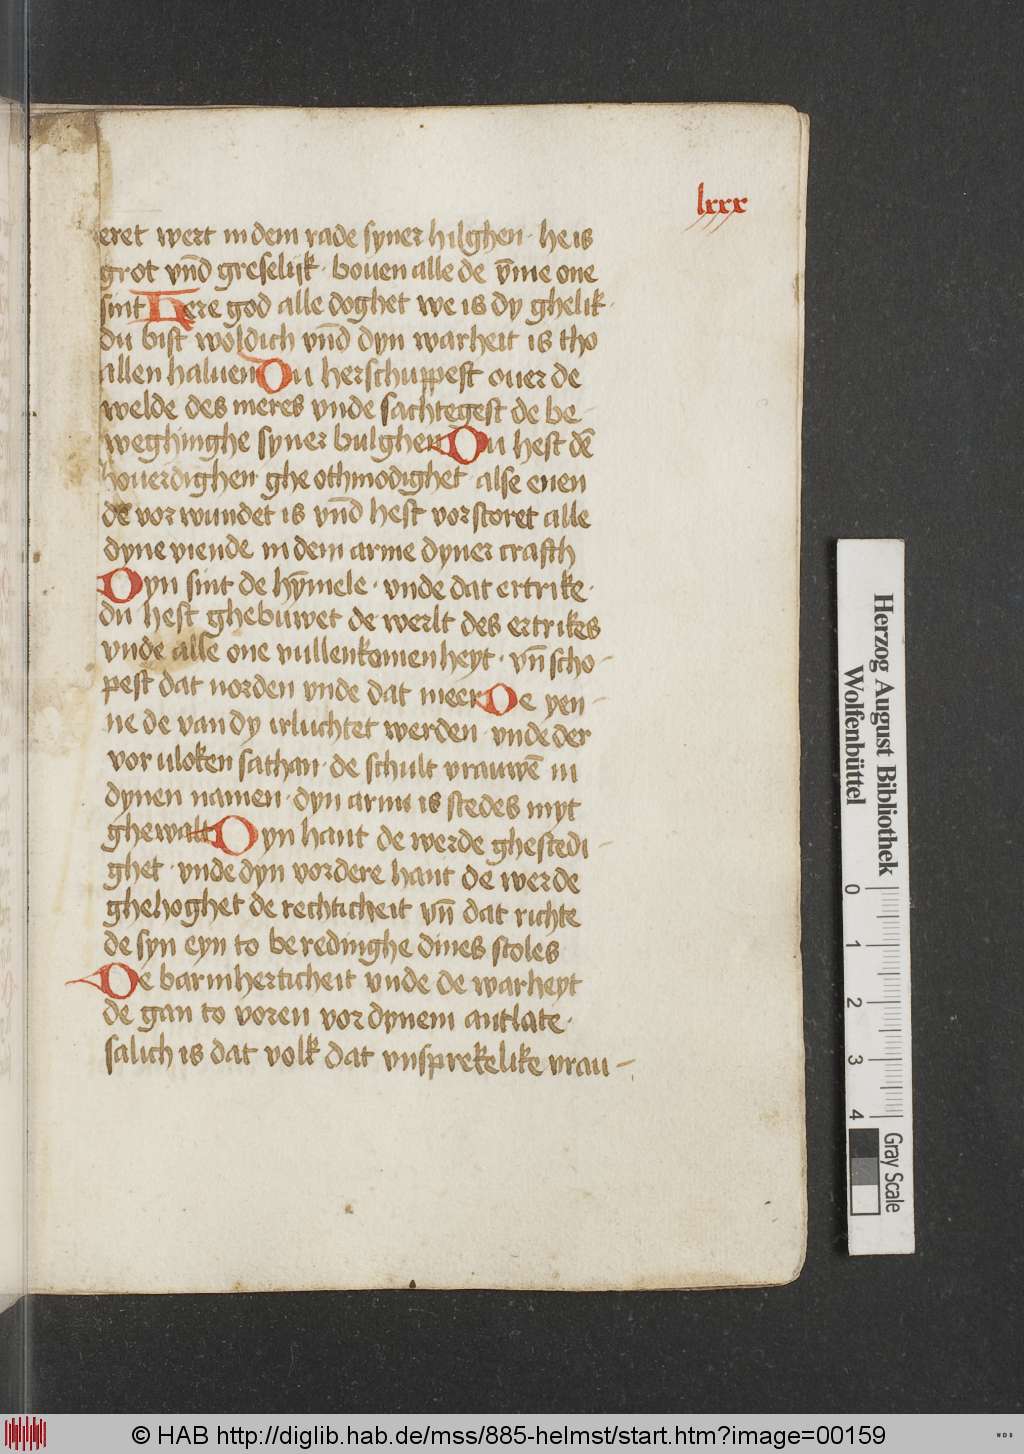 lxxx
eret wert in dem rade syner hilghen · he is
grot vn̄d greselijk · bouen alle de v̄me one
sint Here god alle doghet we is dy ghelik ·
du bist woldich vn̄d dyn warheit is tho
allen haluen Du herschuppest ouer de
welde des meres vnde sachtegest de be-
weghinghe syner bulghen Du hest dē
houerdighen ghe othmodighet alse enen
de vor wundet is vn̄d hest vorstoret alle
dyne viende in dem arme dyner crafth
Dyn sint de hȳmele · vnde dat ertrike ·
du hest ghebuwet de werlt des ertrikes
vnde alle one vullenkomenheyt · vn̄ scho-
pest dat norden vnde dat meer De yen-
ne de van dy irluchtet werden · vnde der
vor uloken sathan · de schult vrauwē in
dynen namen · dyn arm is stedes myt
ghewalt Dyn hant de werde ghestedi-
ghet · vnde dyn vordere hant de werde
ghehoghet de rechticheit vn̄ dat richte
de syn eyn to beredinghe dines stoles
De barmherticheit vnde de warheyt
de gan to voren vor dynem antlate ·
salich is dat volk dat vnsprekelike vrau-
Herzog August Bibliothek
Wolfenbüttel
0 1 2 3 4
Gray Scale
© HAB http://diglib.hab.de/mss/885-helmst/start.htm?image=00159